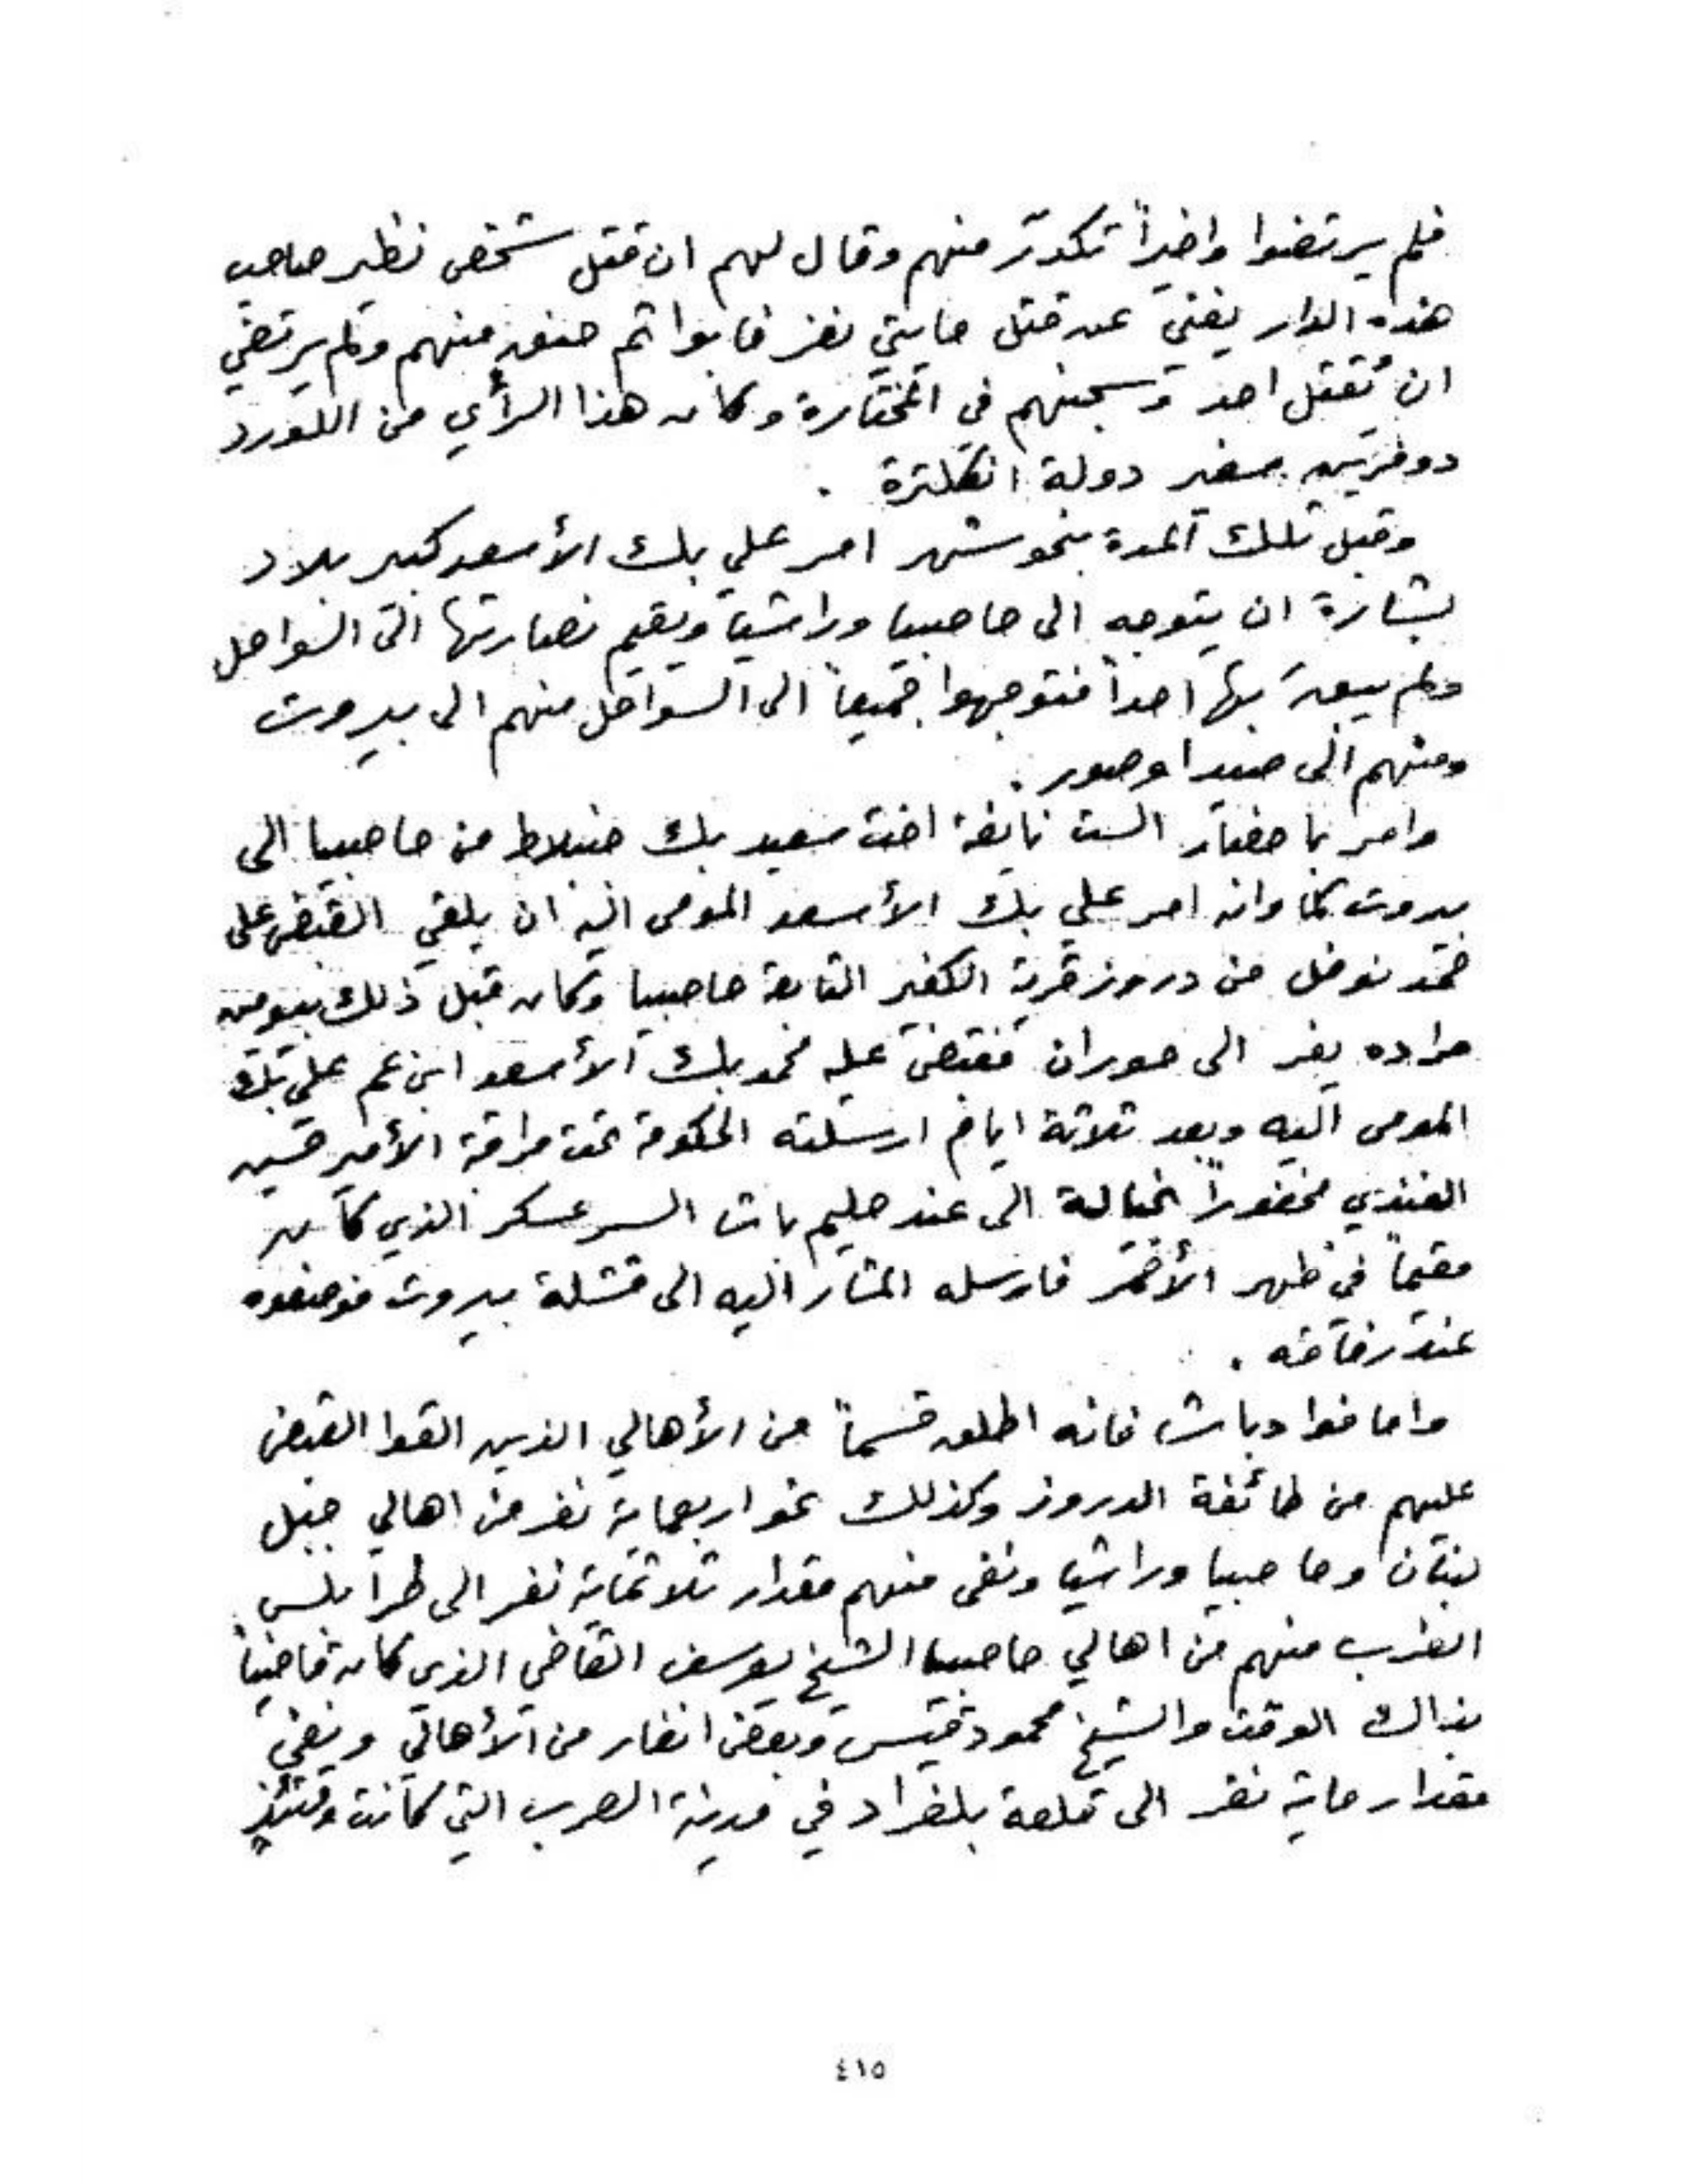 فلم يرتضوا واخيراً تكدر منهم وقال لهم ان قتل شخص نظير صاحب
هذه الدار يغني عن قتل مايتي نفر فابوا ثم حنق منهم ولم يرتضي
ان تقتل احد وسجنهم في المختارة وكان هذا الرأي من اللورد
دوفرين سفير دولة انكلترة .
وقبل تلك المدة بنحو شهر امر علي بك الأسعد كبير بلاد
بشارة ان يتوجه الى حاصبيا وراشيا ويقيم نصارتها الى السواحل
ولم يبق بها احداً فتوجهوا جميعاً الى السواحل منهم الى بيروت
ومنهم الى صيدا وصور .
وامر باحضار الست نايفة اخت سعيد بك جنبلاط من حاصبيا الى
بيروت كما وانه امر علي بك الأسعد المومى اليه ان يلقي القبض على
حمد نوفل من دروز قرية الكفير التابعة حاصبيا وكان قبل ذلك بيومين
مراده يفر الى حوران فقبض عليه محمد بك الأسعد ابن عم علي بك
المومى اليه وبعد ثلاثة ايام ارسلته الحكومة تحت مراقة الأمير حسين
الفندي مخفوراً بخيالة الى عند حليم باشا السر عسكر الذي كان
مقيماً في ظهر الأحمر فارسله المشار اليه الى قشلة بيروت فوضعوه
عند رفاقه .
واما فوادباشا فانه اطلق قسماً من الأهالي الذين القوا القبض
عليهم من طائفة الدروز وكذلك نحو اربعماية نفر من اهالي جبل
لبنان وحاصبيا وراشيا ونفى منهم مقدار ثلاثماية نفر الى طرابلس
الغرب منهم من اهالي حاصبيا الشيخ يوسف القاضي الذي كان قاضياً
بذاك الوقت والشيخ محمود قيس وبعض انفار من الأهالي ونفي
مقدار ماية نفر الى قلعة بلغراد في مدينة الصرب التي كانت وقتئذٍ
٤١٥